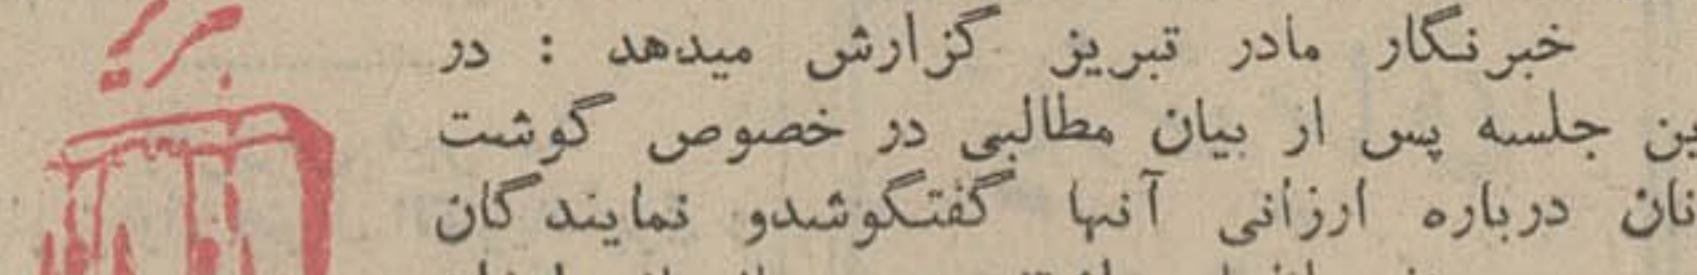 خبرنگار مادر تبریز گزارش میدهد : در
ین جلسه پس از بیان مطالبی در خصوص گوشت
نان درباره ارزانی آنها گفتگوشدو نمایندگان